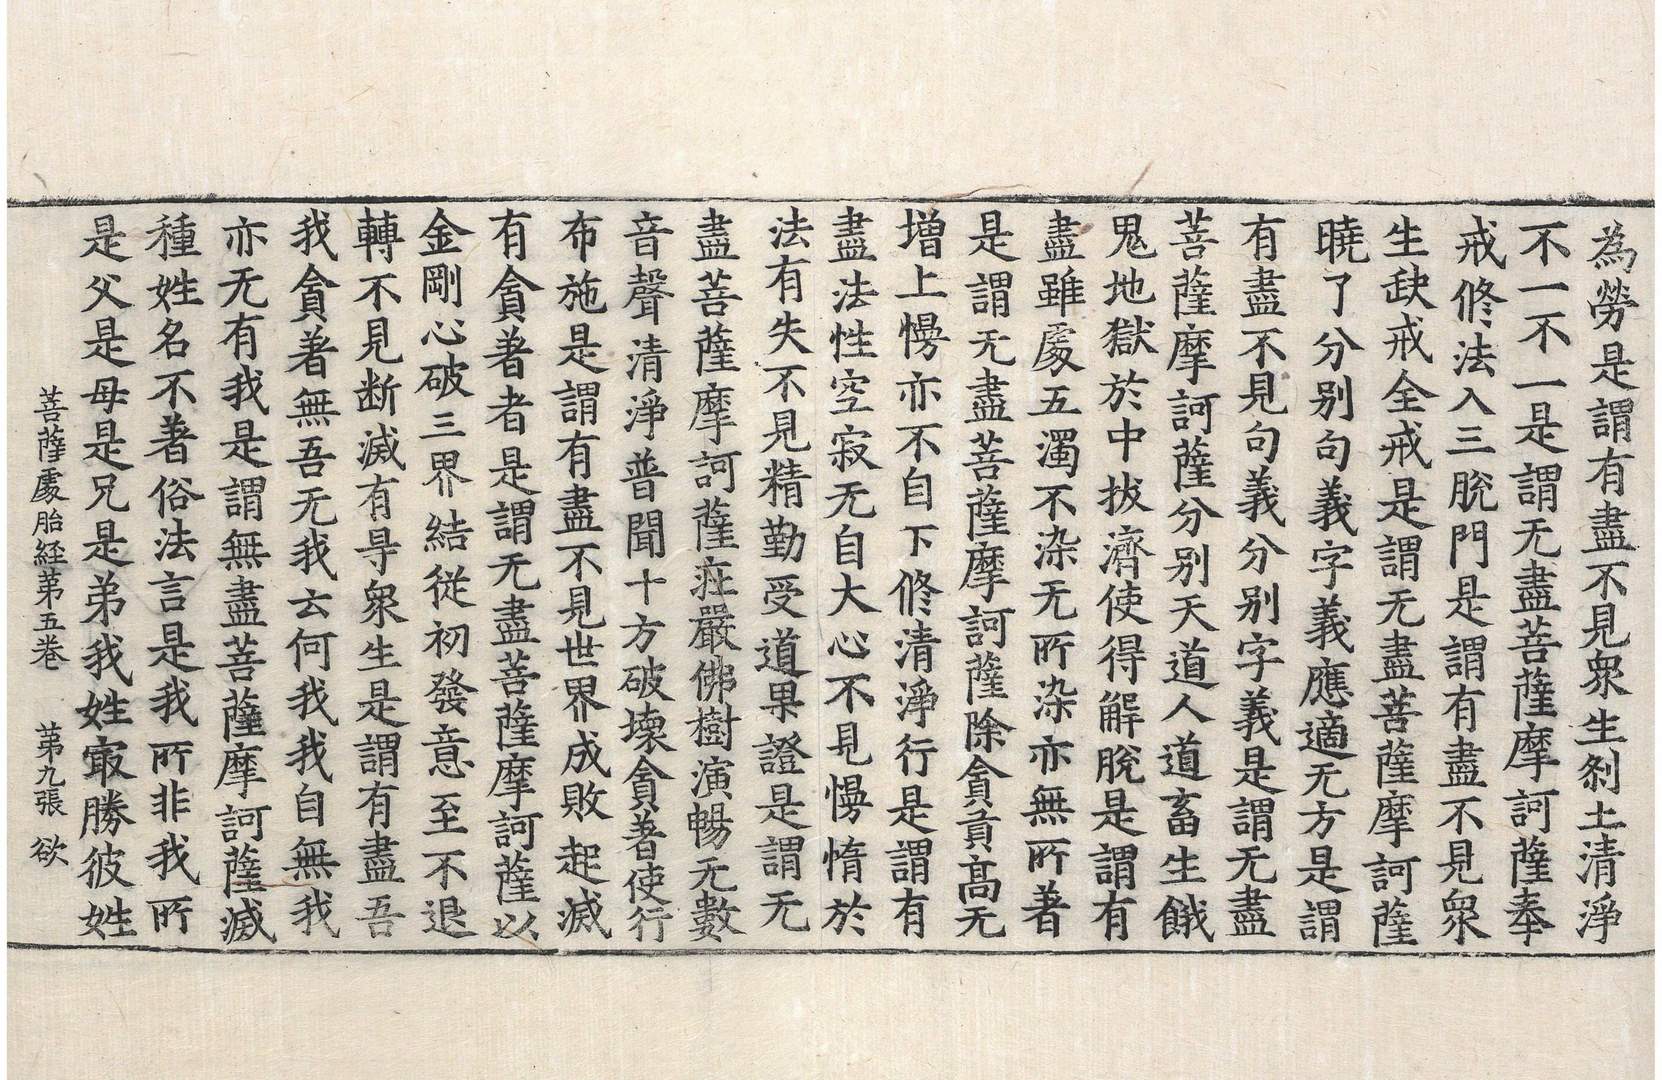 為勞是謂有盡不見衆生刹土清淨
不一不一是謂无盡菩薩摩訶薩奉
戒修法入三脫門是謂有盡不見衆
生缺戒全戒是謂无盡菩薩摩訶薩
曉了分别句義字義應適无方是謂
有盡不見句義分别字義是謂无盡
菩薩摩訶薩分别天道人道畜生餓
鬼地獄於中拔濟使得解脫是謂有
盡雖處五濁不染无所染亦無所著
是謂无盡菩薩摩訶薩除貪貢高无
增上慢亦不自下修清淨行是謂有
盡法性空寂无自大心不見慢惰於
法有失不見精勤受道果證是謂无
盡菩薩摩訶薩莊嚴佛樹演暢无數
音聲清淨普聞十方破壞貪著使行
布施是謂有盡不見世界成敗起滅
有貪著者是謂无盡菩薩摩訶薩以
金剛心破三界結從初發意至不退
轉不見断滅有㝵衆生是謂有盡吾
我貪著無吾无我云何我我自無我
亦无有我是謂無盡菩薩摩訶薩滅
種姓名不著俗法言是我所非我所
是父是母是兄是弟我姓㝡勝彼姓
菩薩處胎経苐五卷 苐九張 欲